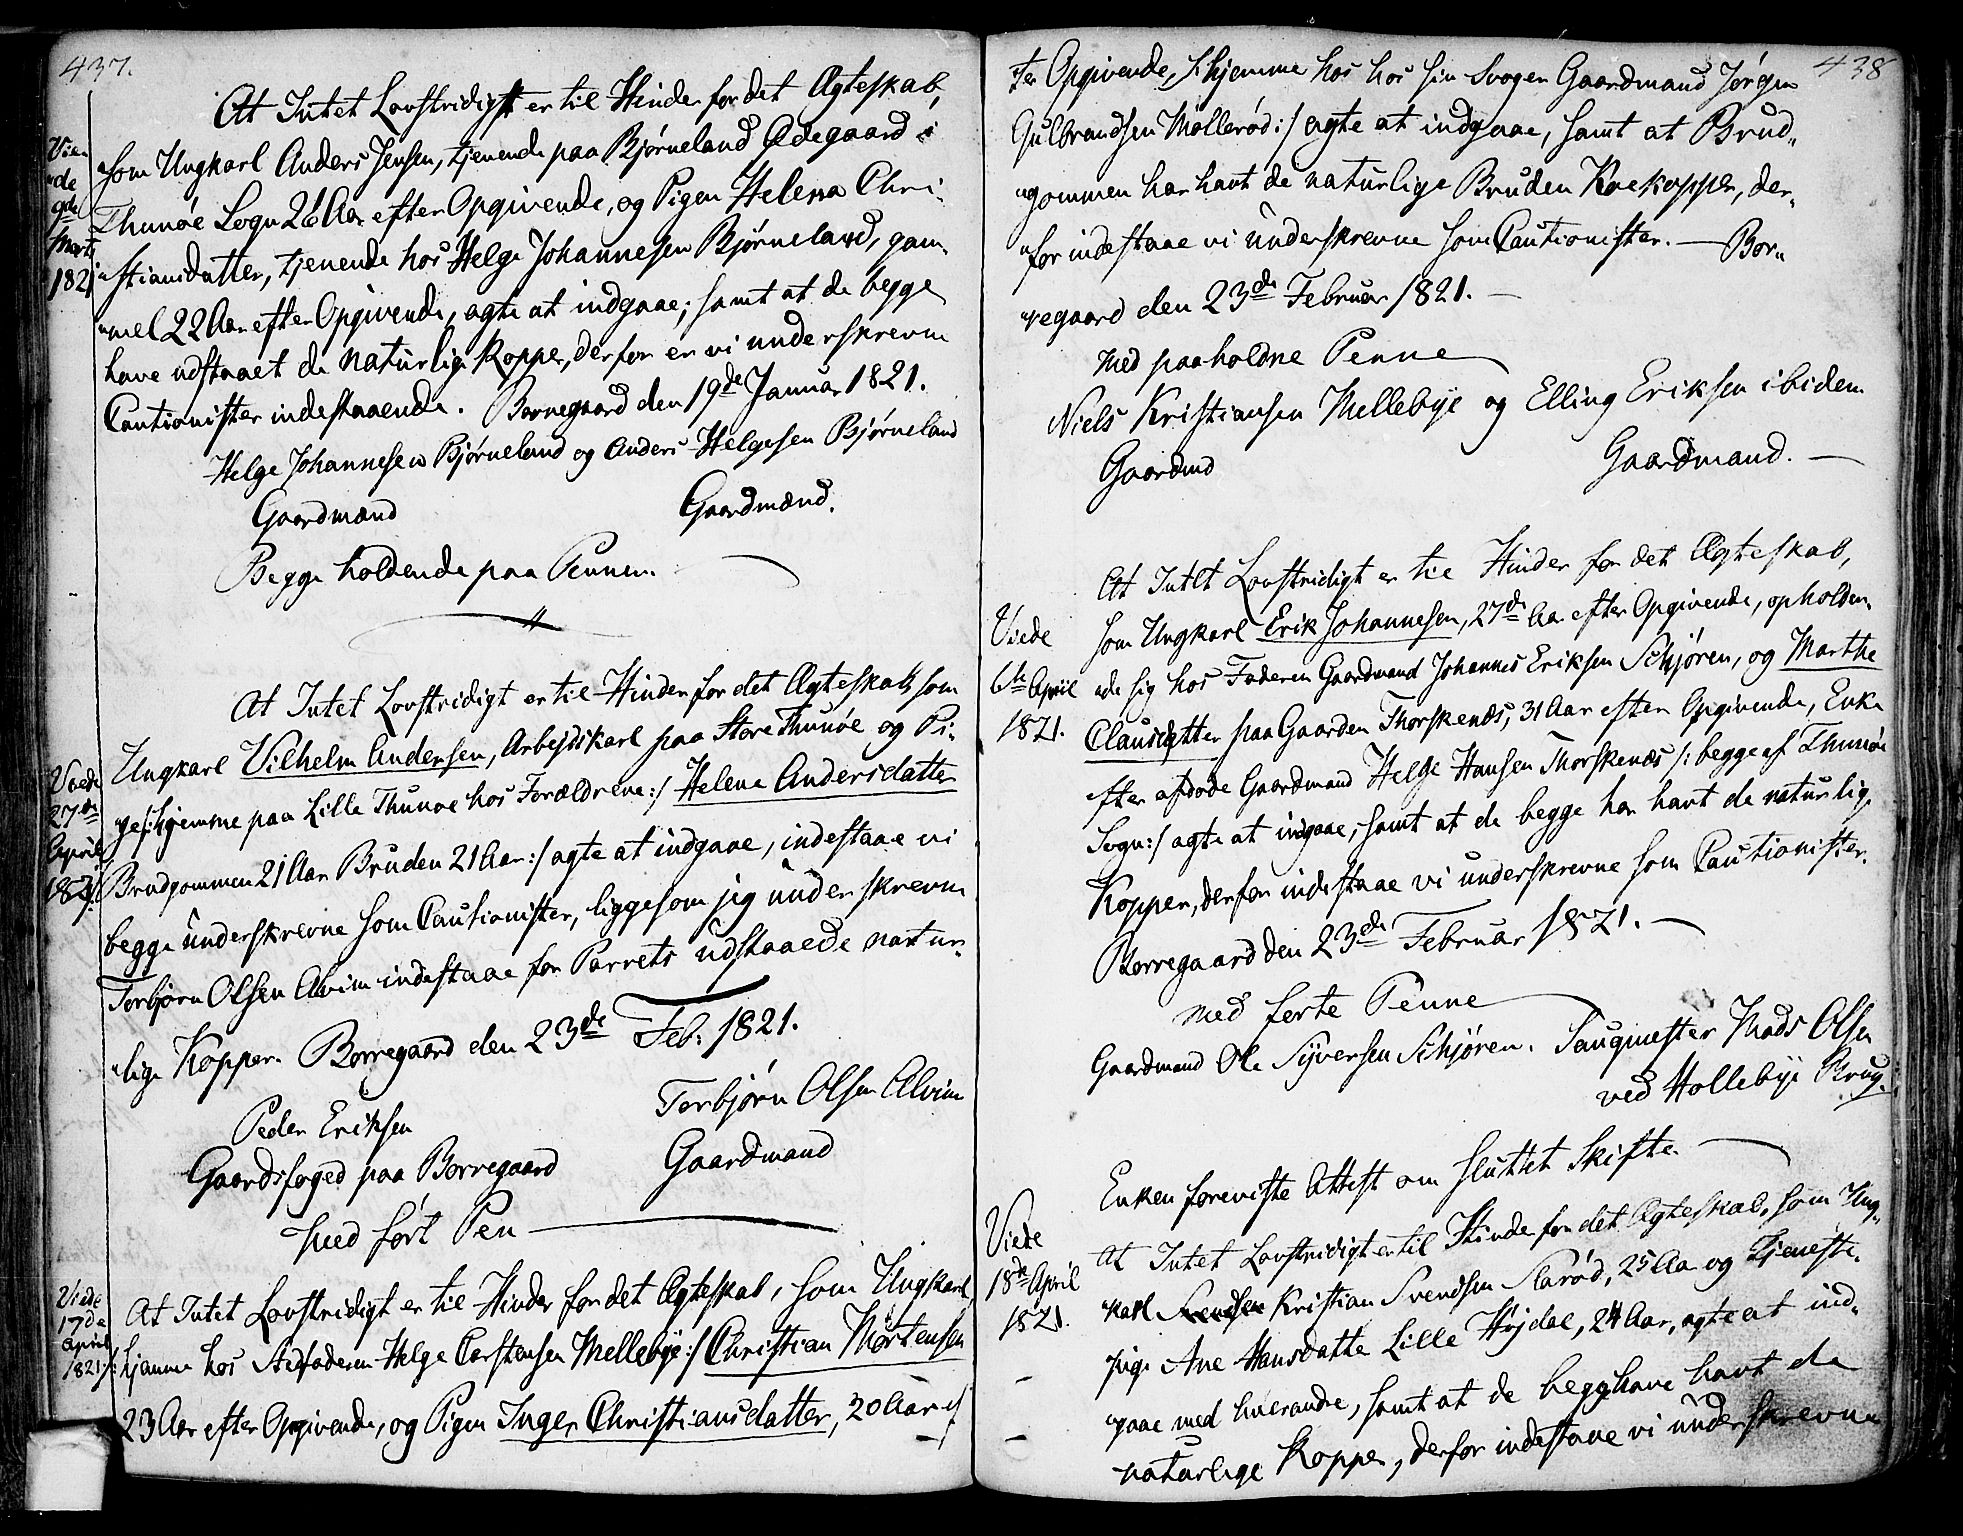 437.
At Intet Lovstridigt er til Hinder for det Ægteskab,
Viede
9de
Marts
1821
som Ungkarl Anders Jensen, tjenende paa Bjørneland Ødegaard i
Thunøe Sogn 26 Aar efter Opgivende, og Pigen Helena Chri-
stiansdatter, tjenende hos Helge Johannesen Bjørneland, gam-
mel 22 Aar efter Opgivende, agte at indgaae; samt at de begge
have udstaaet de naturlige Kopper, derfor er vi underskrevne
Cautionister indestaaende. Borregaard den 19de Januar 1821.
Helge Johannesen Bjørneland og Anders Helgesen Bjørneland
Gaardmand Gaardmand.
Begge holdende paa Pennen.
At Intet Lovstridigt er til Hinder for det Ægteskab som
Viede
27de
April
1821.
Ungkarl Vilhelm Andersen, Arbejdskarl paa Store Thunøe og Pi-
ge /: hjemme paa Lille Thunøe hos Forældrene :/ Helene Andersdatter
Brudgommen 21 Aar Bruden 21 Aar :/ agte at indgaae, indestaae vi
begge underskrevne som Cautionister, liggesom jeg underskrevne
Torbjørn Olsen Alvim indestaae for Parrets udstaaede natur-
lige Kopper. Borregaard den 23de Feb. 1821.
Peder Eriksen Torbjørn Olsen Alvim
Gaardsfoged paa Borregaard Gaardmand
med ført Pen
Viede
17de
April
1821
At Intet Lovstridigt er til Hinder for det Ægteskab, som Ungkarl
/: hjemme hos Stedfaderen Helge Carstensen Mellebye :/ Christian Mortensen
23 Aar efter Opgivende, og Pigen Inger Christiansdatter, 20 Aar ef
438
ter Opgivende, /: hjemme hos hos sin Svoger Gaardmand Jørgen
Gulbrandsen Møllerød :/ agte at indgaae, samt at Brud-
gommen har havt de naturlige Bruden Koekopper, der-
for indestaae vi underskrevne som Cautionister. — Bor-
regaard den 23de Februar 1821. —
med paaholdne Penne
Niels Kristiansen Mellebye og Elling Eriksen ibidem
Gaardmd Gaardmand. —
At Intet Lovstridigt er til Hinder for det Ægteskab,
Viede
6te April
1821.
som Ungkarl Erik Johannesen, 27de Aar efter Opgivende, opholden-
de sig hos Faderen Gaardmand Johannes Eriksen Schjøren, og Marthe
Clausdatter paa Gaarden Thorskenæs, 31 Aar efter Opgivende, Enke
efter afdøde Gaardmand Helge Hansen Thorskenæs /: begge af Thunøe
Sogn :/ agte at indgaae, samt at de begge har havt de naturlige
Kopper, derfor indestaae vi underskrevne som Cautionister.
Borregaard den 23de Februar 1821. —
med førte Penne
Gaardmand Ole Syversen Schjøren. Saugmester Mads Olsen
ved Hollebye Brug.
Enken foreviste Attest om sluttet Skifte.
Viede
18de April
1821.
At Intet Lovstridigt er til Hinder for det Ægteskab, som Ung-
karl Kristian Svendsen Aarød, 25 Aar og Tjeneste-
pige Ane Hansdatter Lille Højdal, 24 Aar, agte at ind-
gaae med hverandre, samt at de begge have havt de
naturlige Kopper, derfor indestaae vi underskrevne